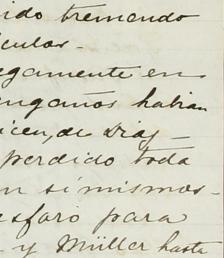 ido tremendo
culos-
egamente en
engaños habian
icen, de Diaz
perdido toda
n si mismos-
esforo para
y Müller haste